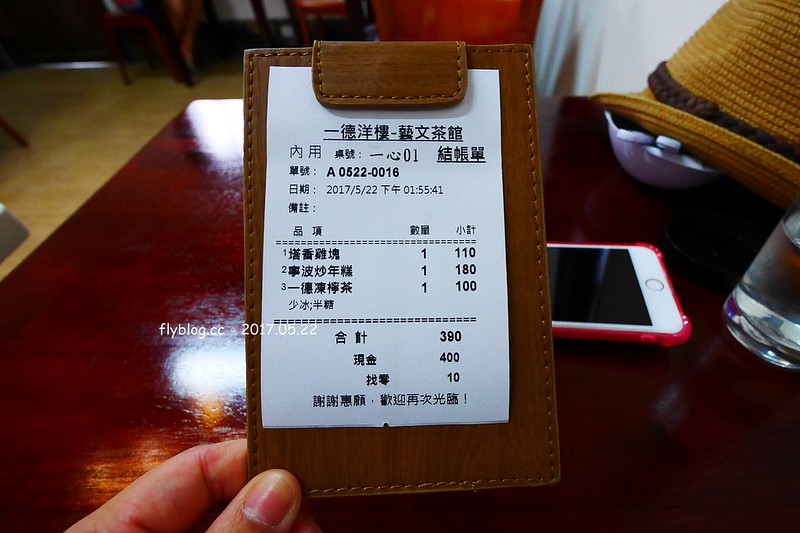 一德洋樓-藝文茶館
內用 桌號： 一心01 結帳單
單號： A 0522-0016
日期： 2017/5/22 下午 01:55:41
備註：
品 項 數量 小計
1塔香雞塊 1 110
2寧波炒年糕 1 180
3一德凍檸茶 1 100
少冰;半糖
合 計 390
現金 400
找零 10
謝謝惠顧，歡迎再次光臨！
flyblog.cc - 2017.05.22